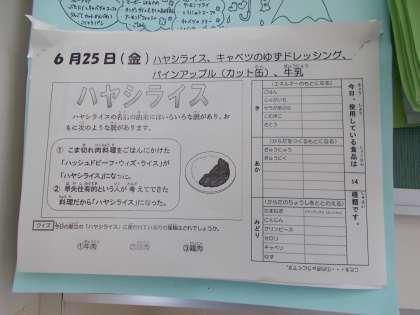 6月25日(金) ハヤシライス、キャベツのゆずドレッシング、
パインアップル(カット缶)、牛乳
ハヤシライス
ハヤシライスの名前の由来にはいろいろな説があり、お
もに次のような説があります。
① こま切れ肉料理をごはんにかけた
「ハッシュドビーフ・ウィズ・ライス」が
「ハヤシライス」になった。
② 早矢仕有的という人が考えてできた
料理だから「ハヤシライス」になった。
クイズ 今日の献立の「ハヤシライス」に使われている肉の種類はどれでしょうか。
①牛肉 ②豚肉 ③鶏肉
今日、使用している食品は 14 種類です。
き
(エネルギーのもとになる)
ごはん
じゃがいも
こむぎこ
さとう
あか
(からだをつくるもとになる)
ぎゅうにゅう
ぎゅうにく
みどり
(からだのちょうしをととのえる)
たまねぎ
にんじん
グリンピース
セロリ
キャベツ
ゆず